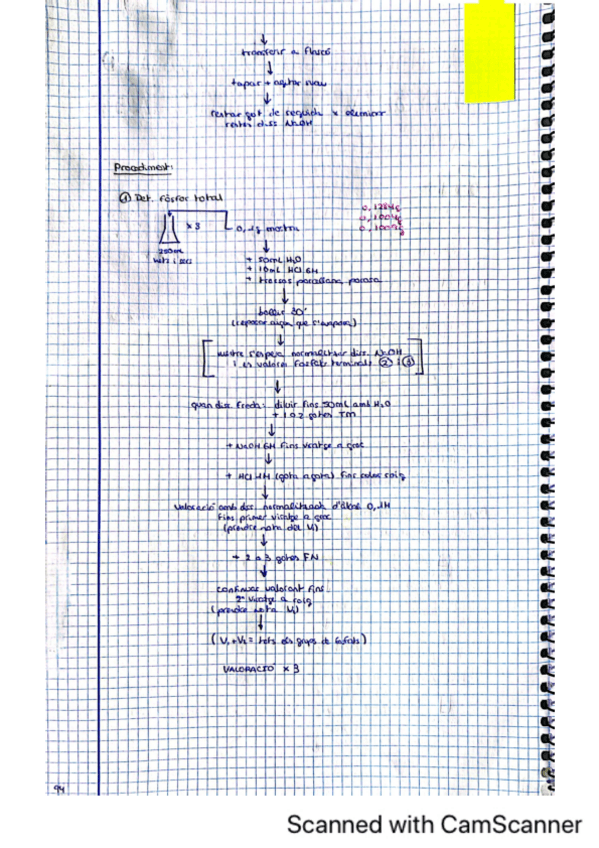 transferir a flascó
tapar + agitar nou
restar got de x eliminar
restes diss NaOH
Procediment:
① Det. fòsfor total
0,1284g
0,1004g
0,1009g
x 3
0,1g mostra
250mL
nets i secs
+ 50mL H2O
+ 10mL HCl 6M
+ trossos porcellana porosa
bullir 20'
(reposar aigua que s'evapora)
mentre s'espera, normalitzar diss. NaOH
i es valoren fosfats terminals ② i ③
quan diss freda: diluir fins 50mL amb H2O
+ 1 o 2 gotes TM
+ NaOH 6M fins viratge a groc
+ HCl 1M (gota a gota) fins color roig
Valoració amb diss. normalitzada d'àlcali 0,1M
fins primer viratge a groc
(prendre nota del V1)
+ 2 o 3 gotes FN
continuar valorant fins
2n viratge a roig
(prendre nota V2)
(V1 + V2 = tots els grups de fosfats)
VALORACIÓ x 3
94
Scanned with CamScanner